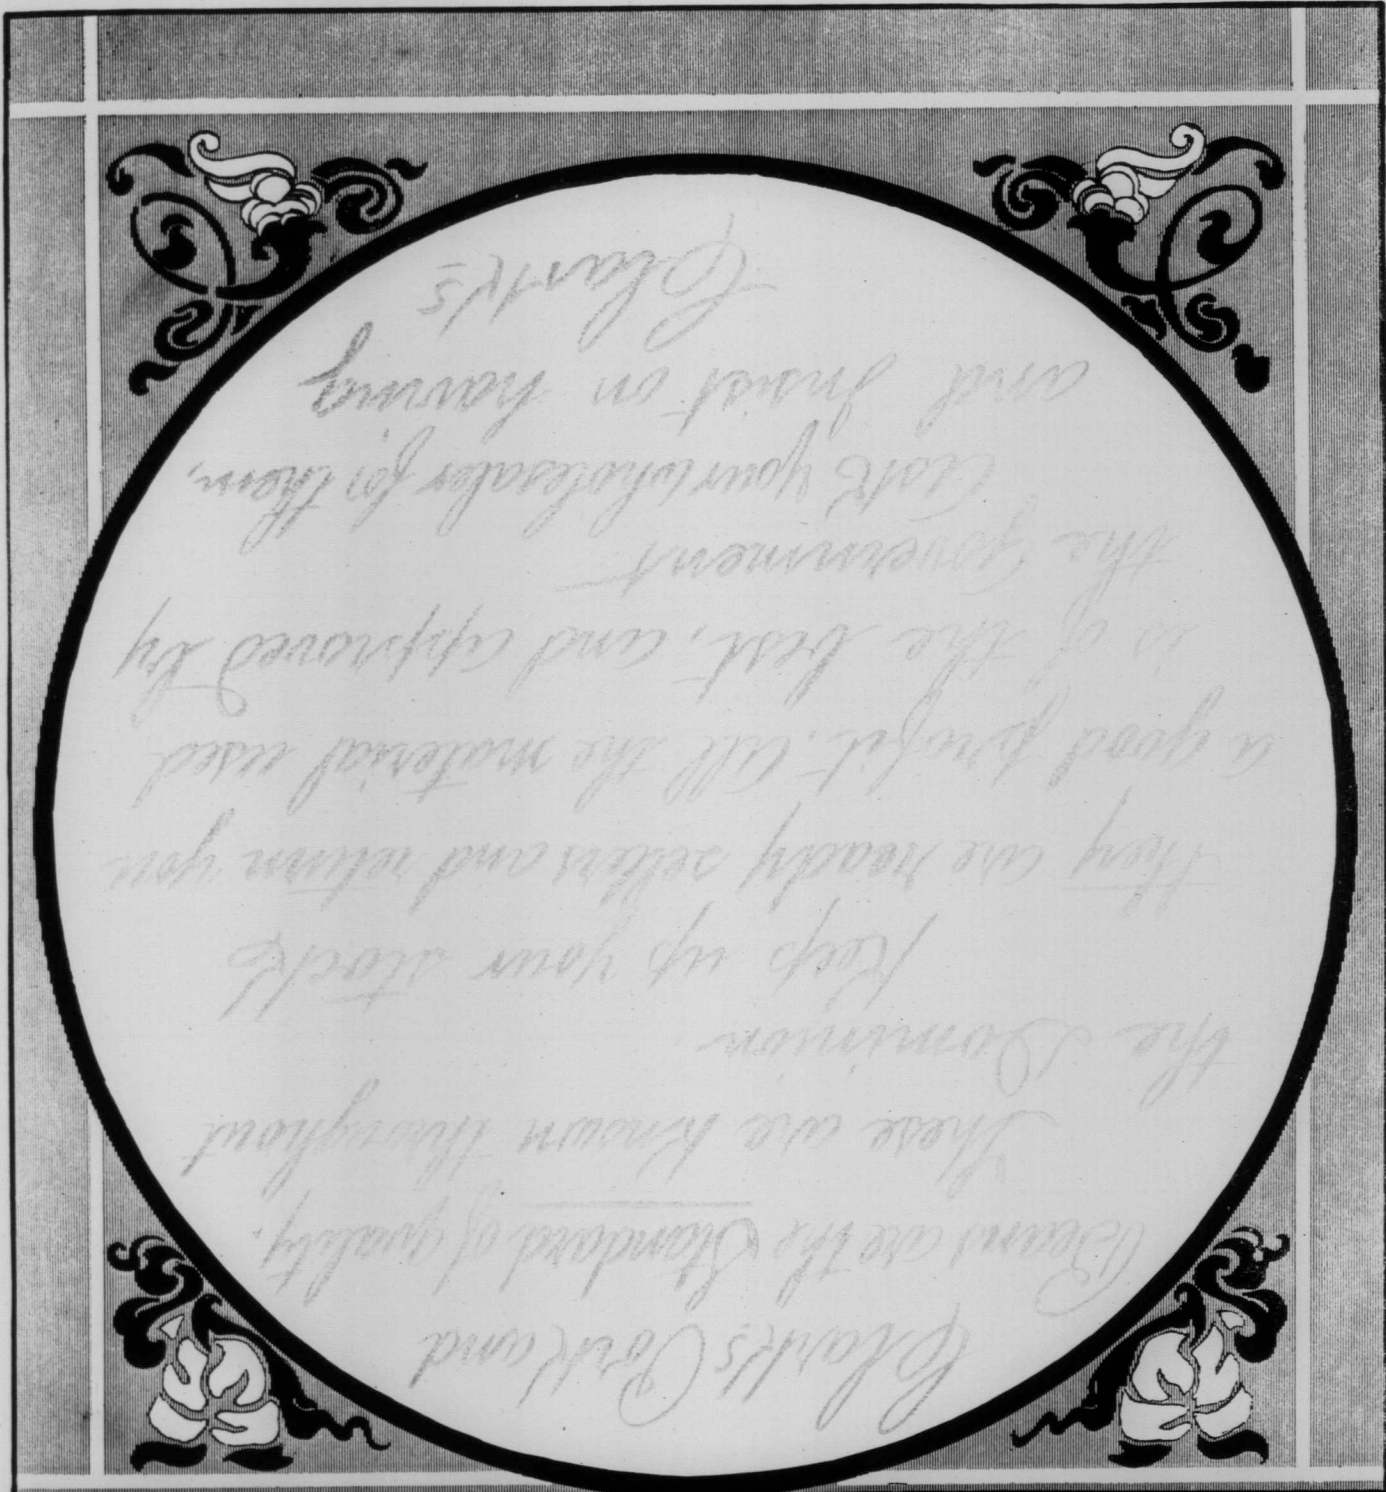 Clark's Pork and
Beans are the Standard of quality.
These are known throughout
the Dominion
Keep up your stock
they are ready sellers and return you
a good profit. All the material used
is of the best, and approved by
the Government
Ask your wholesaler for them,
and Insist on having
Clark's